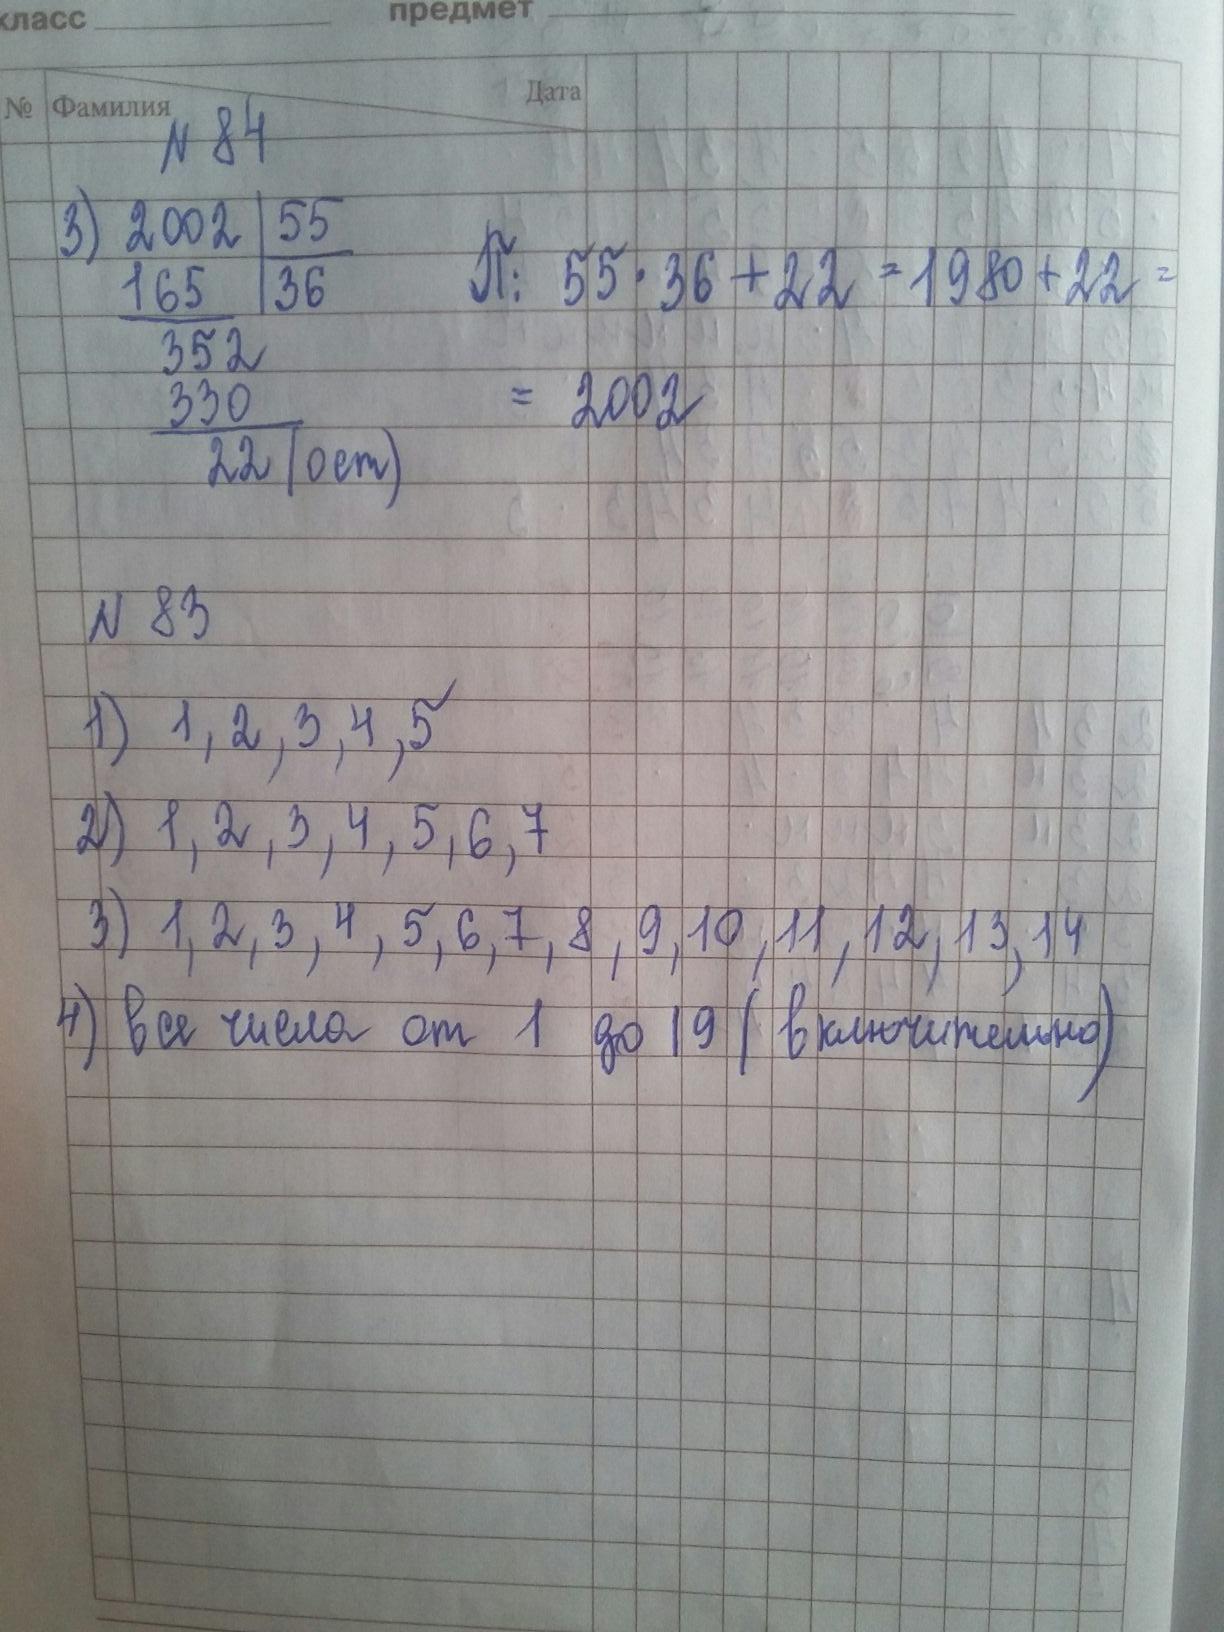 класс предмет
№ Фамилия Дата
N 84
3) 2002 | 55
165 | 36
П: 55 · 36 + 22 = 1980 + 22 =
352
330
= 2002
22 (ост)
N 83
1) 1, 2, 3, 4, 5
2) 1, 2, 3, 4, 5, 6, 7
3) 1, 2, 3, 4, 5, 6, 7, 8, 9, 10, 11, 12, 13, 14
4) все числа от 1 до 19 (включительно)